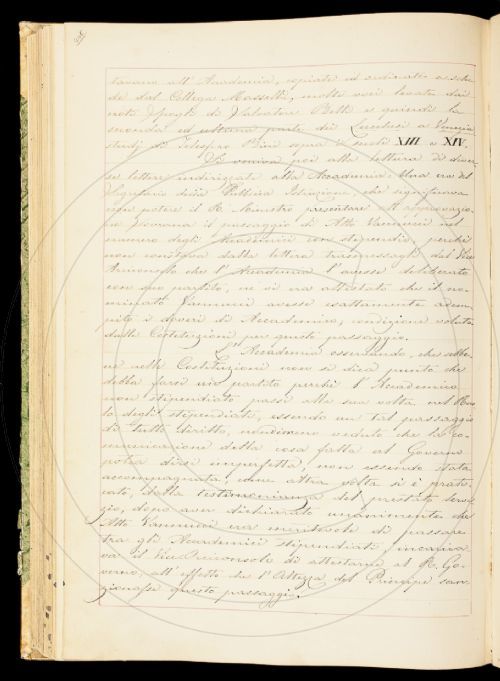 tavano all'Accademia, copiate ed ordinate a schede
dal Collega Masselli, molte voci levate dai
noti Spogli di Salvatore Betti e quindi la
seconda ed ultima parte dei Lucchesi a Venezia
studj di Telesforo Bini sopra i secoli XIII e XIV.
Si veniva poi alla lettura di diver-
se lettere indirizzate alla Accademia: Una era del
Segretario della Pubblica Istruzione, che significava
non potere il R. Ministro presentare all'approvazio-
ne Sovrana il passaggio di Atto Vannucci nel
numero degli Accademici con stipendio, perchè
non constava dalla lettera trasmessagli dal Vice
Arciconsolo che l'Accademia l'avesse deliberato
con suo partito, nè si era attestato che il no-
minato Vannucci avesse esattamente adem-
pito i doveri di Accademico, condizione voluta
dalle Costituzioni per questo passaggio.
L'Accademia osservando, che sebbe-
ne nelle Costituzioni non si dica punto che
debba farsi un partito perchè l'Accademico
non stipendiato passi alla sua volta nel Ruo-
lo degli stipendiati, essendo un tal passaggio
di tutto diritto, nondimeno veduto che la co-
municazione della cosa fatta al Governo
potea dirsi imperfetta, non essendo stata
accompagnata, come altra volta si è prati-
cato, dalla testimonianza del prestato servi-
zio, dopo aver dichiarato unanimemente che
Atto Vannucci era meritevole di passare
tra gli Accademici stipendiati, incarica-
va il Vice Arciconsolo di attestarne al R. Go-
verno all'effetto che l'Altezza del Principe san-
zionasse questo passaggio.